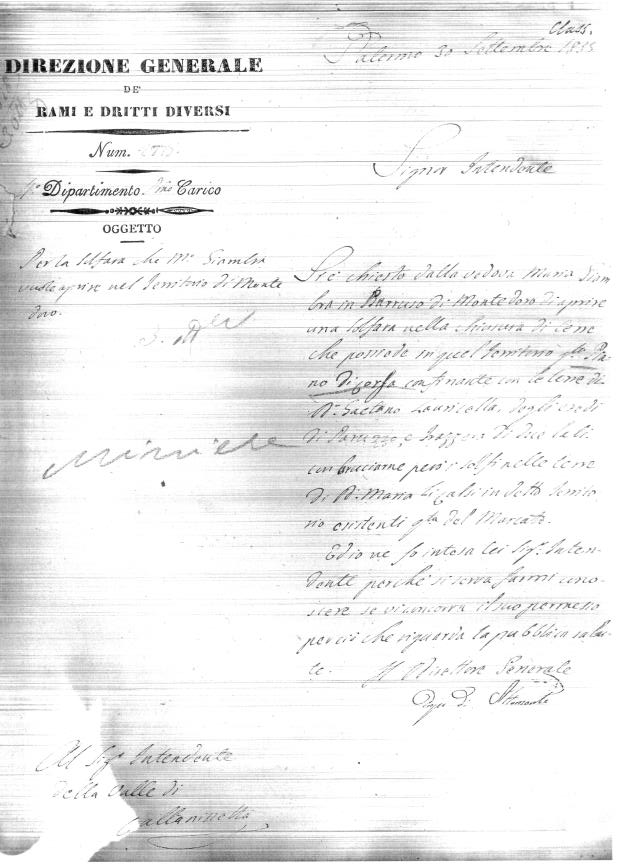 Class.
Palermo 30 Settembre 1833
DIREZIONE GENERALE
DE'
RAMI E DRITTI DIVERSI
Num.
Dipartimento. Carico
OGGETTO
Per la solfara che Ma. Giambra
vuole aprire nel Territorio di Monte
doro.
Miniere
Signor Intendente
Si è chiesto dalla vedova Maria Giam
bra in Parruzzo di Montedoro di aprire
una solfara nella chiusura di terre
che possiede in quel Territorio
confinante con le terre di
Dn. Gaetano Lauricella, degli eredi
di e di due lati
con bruciarne però i solfi nelle terre
di Da. Maria Licalsi in detto territo
rio esistenti del Mercato.
Ed io ne fo intesa lei Sigr. Inten
dente perchè si serva farmi cono
scere se vi concorra il suo permesso
per ciò che riguarda la pubblica salu
te.
Il Direttore Generale
Al Sigr. Intendente
della Valle di
Caltanissetta